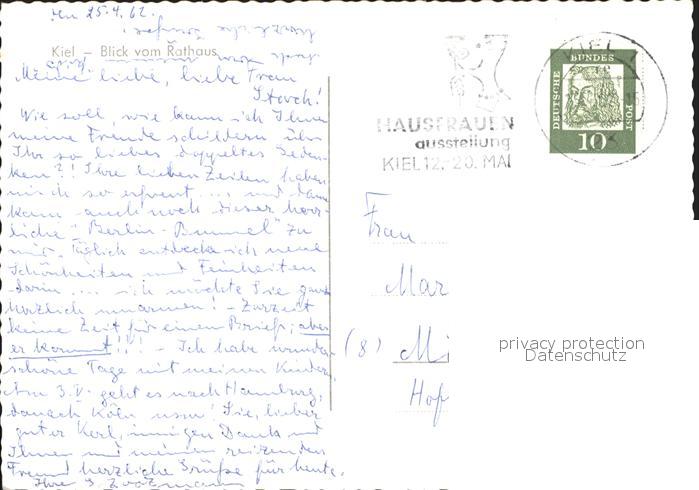 den 25.4.62.
Kiel – Blick vom Rathaus
Meine liebe, liebe Frau
Storch!
Wie soll, wie kann ich Ihnen
meine Freude schildern über
Ihr so liebes doppeltes Geden-
ken?! Ihre lieben Zeilen haben
mich so erfreut.... und dann
kam auch noch dieser herz-
liche "Berlin-Bummel" zu
mir. Täglich entdecke ich neue
Schönheiten und Feinheiten
darin.... ich möchte Sie ganz
herzlich umarmen! – Zurzeit
keine Zeit für einen Brief; aber
er kommt!!! – Ich habe wunder-
schöne Tage mit meinen Kindern,
Am 3.V. geht es nach Hamburg,
danach Köln usw! Sie, lieber
guter Kerl, innigen Dank und
Ihnen und meinen reizenden
Freund herzliche Grüße für heute.
Ihre
KIEL 1
HAUSFRAUEN
ausstellung
KIEL 12.-20. MAI
DEUTSCHE
BUNDES
POST
10
Frau
Mar
(8) Mi
Hof
privacy protection
Datenschutz